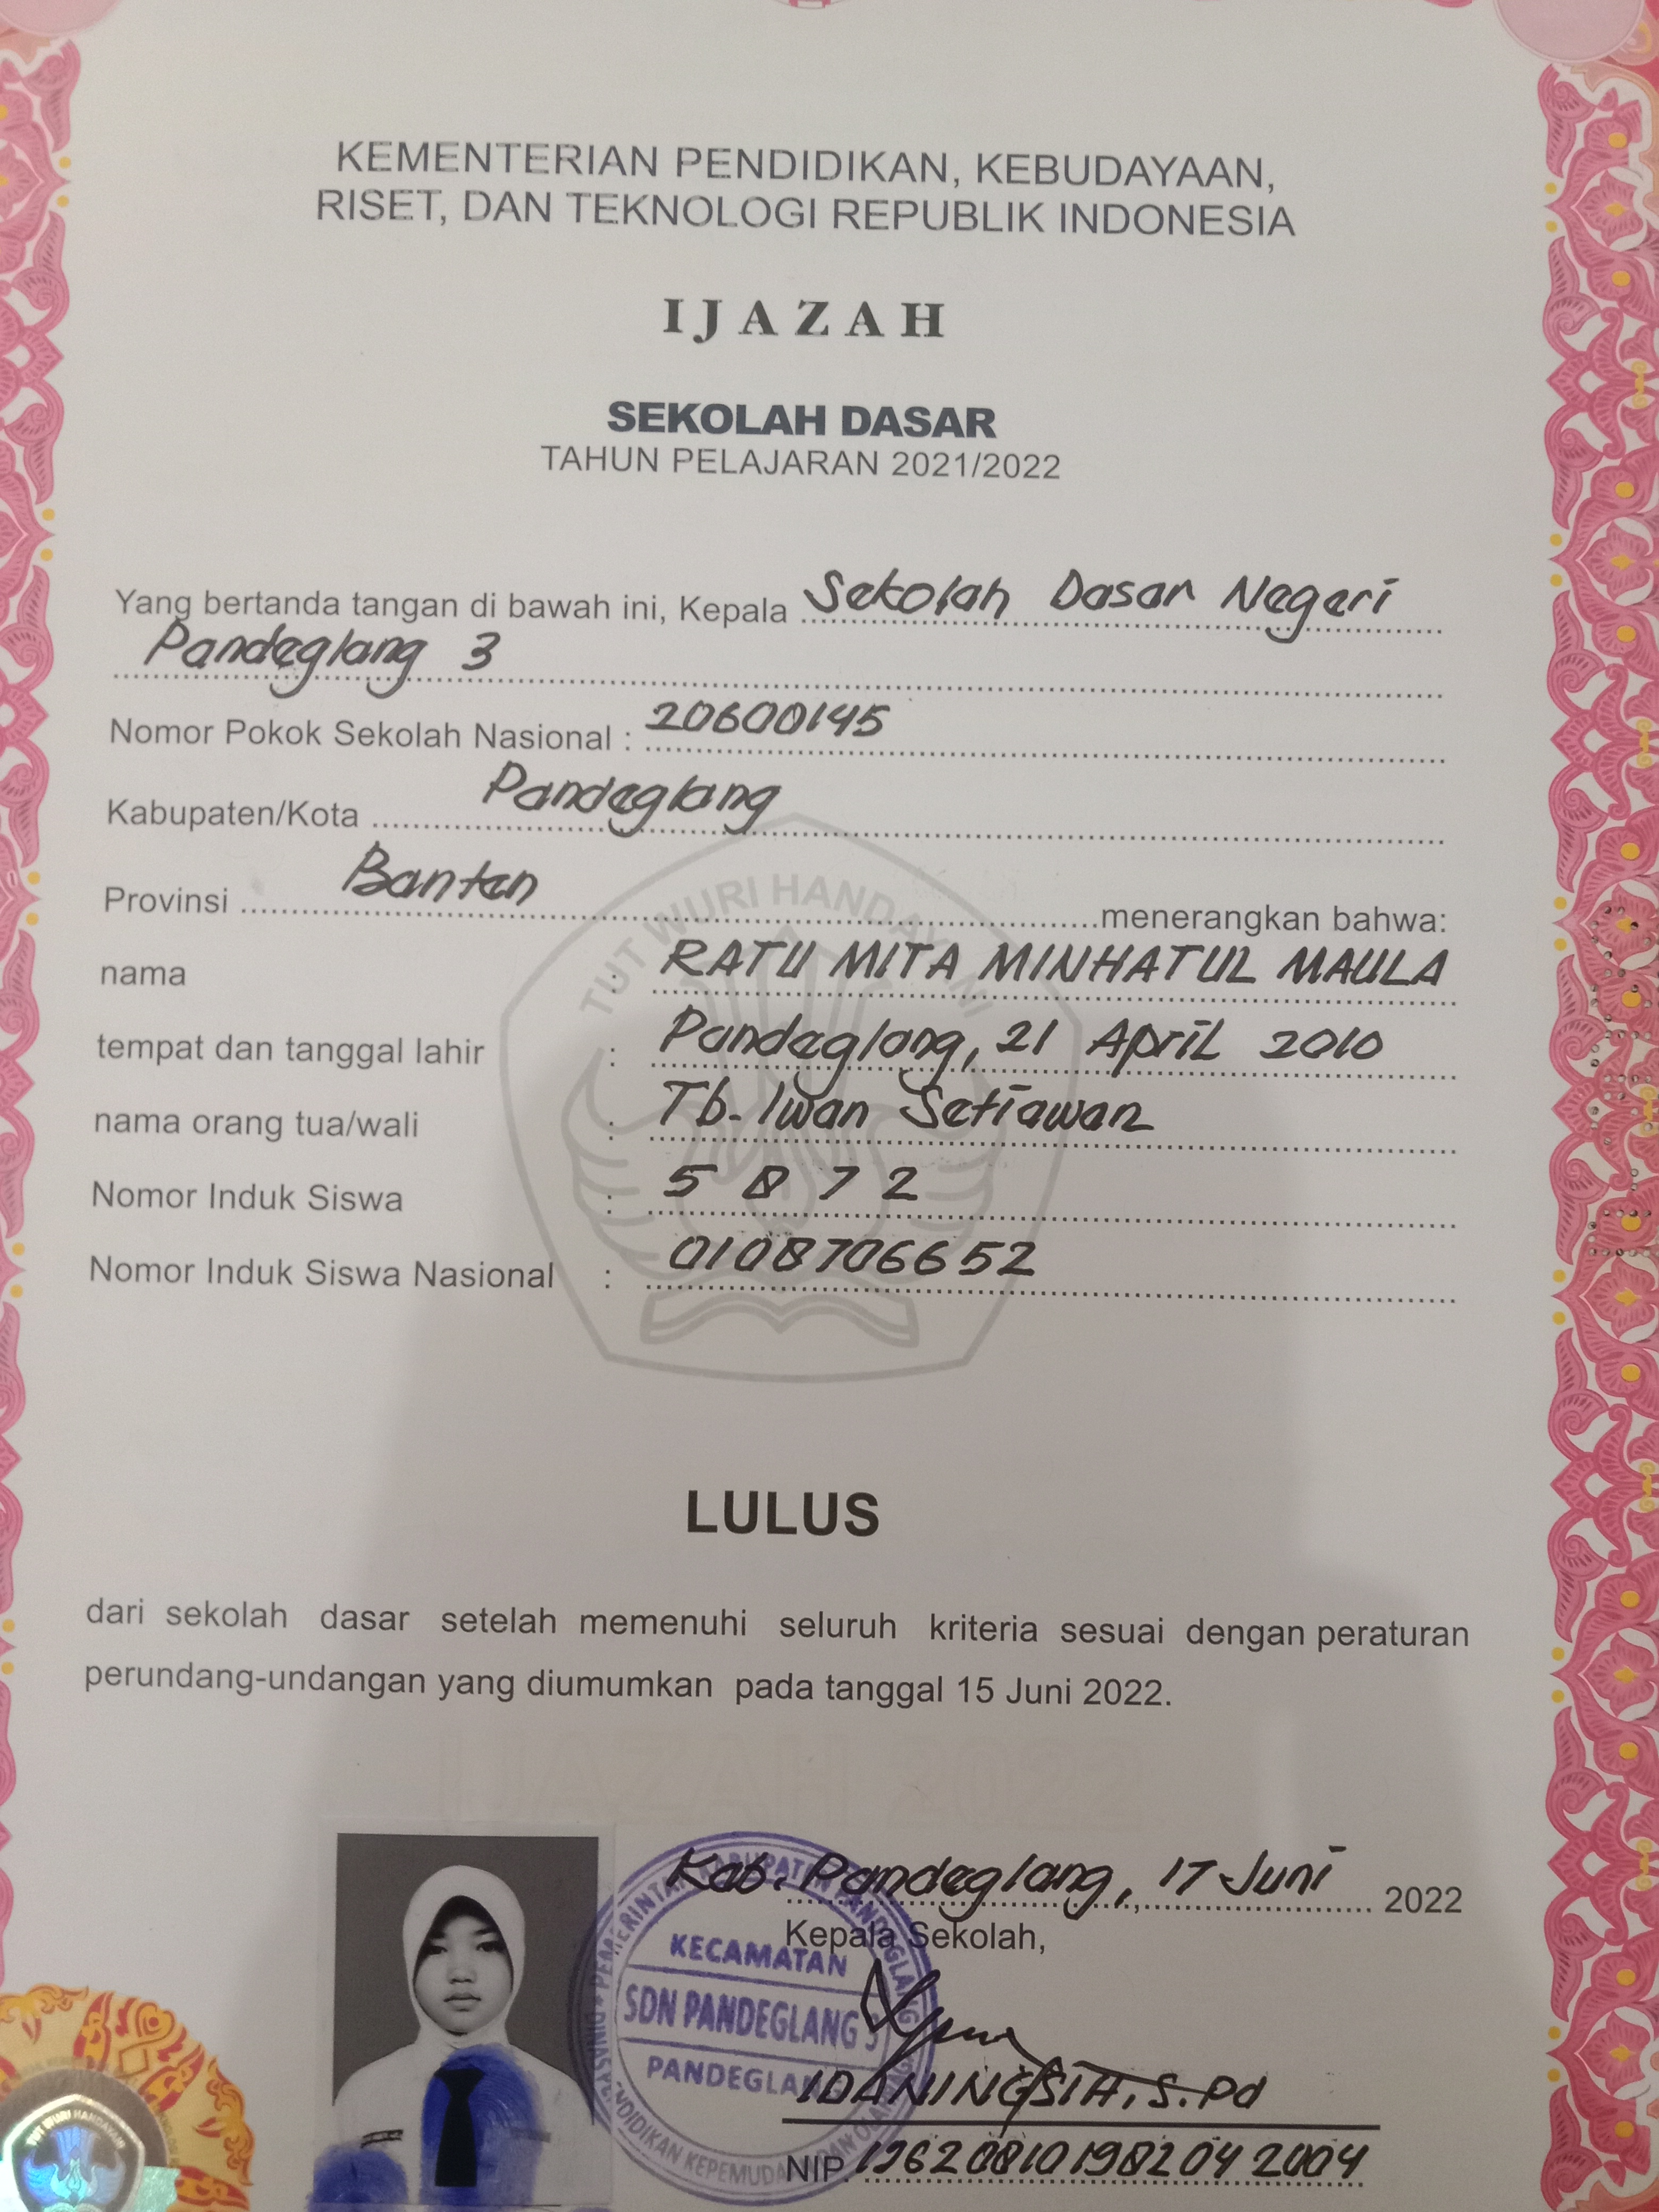 KEMENTERIAN PENDIDIKAN, KEBUDAYAAN,
RISET, DAN TEKNOLOGI REPUBLIK INDONESIA
IJAZAH
SEKOLAH DASAR
TAHUN PELAJARAN 2021/2022
Yang bertanda tangan di bawah ini, Kepala Sekolah Dasar Negeri
Pandeglang 3
Nomor Pokok Sekolah Nasional : 20600145
Kabupaten/Kota Pandeglang
Provinsi Banten menerangkan bahwa:
TUT WURI HANDAYANI
nama : RATU MITA MINHATUL MAULA
tempat dan tanggal lahir : Pandeglang, 21 April 2010
nama orang tua/wali : Tb. Iwan Setiawan
Nomor Induk Siswa : 5872
Nomor Induk Siswa Nasional : 0108706652
LULUS
dari sekolah dasar setelah memenuhi seluruh kriteria sesuai dengan peraturan
perundang-undangan yang diumumkan pada tanggal 15 Juni 2022.
Kab. Pandeglang, 17 Juni 2022
Kepala Sekolah,
KECAMATAN
SDN PANDEGLANG 3
PANDEGLANG
IDANINGSIH, S.Pd
NIP. 196208101982042004
TUT WURI HANDAYANI